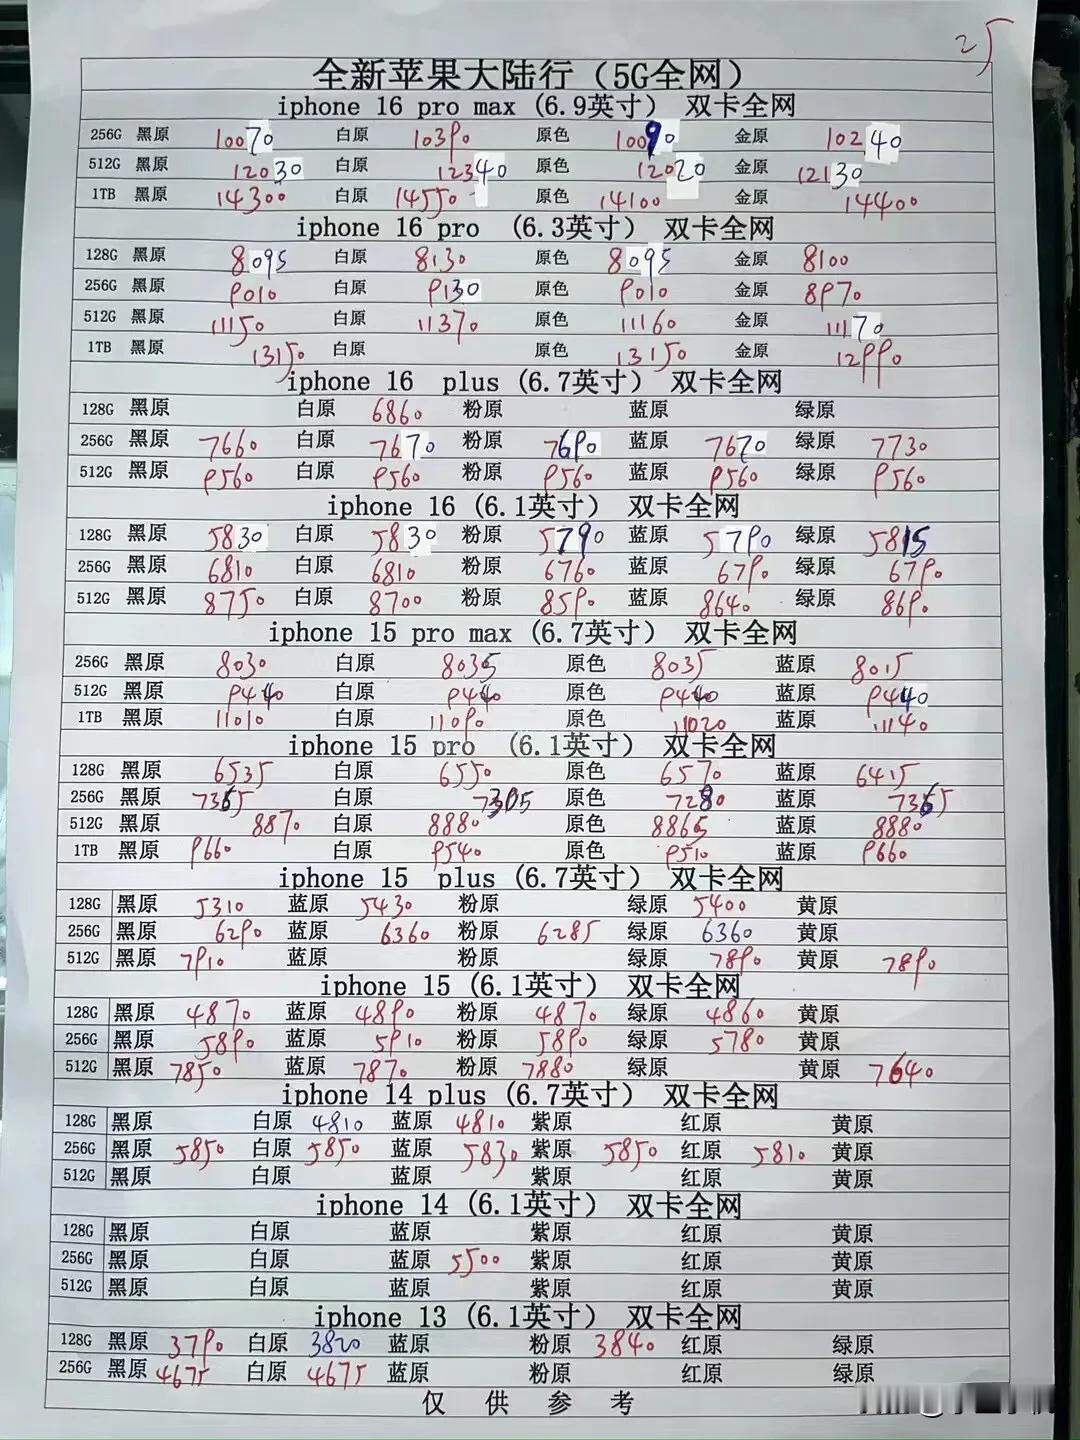 25
全新苹果大陆行（5G全网）
iphone 16 pro max (6.9英寸） 双卡全网
256G 黑原 10070 白原 10390 原色 10090 金原 10240
512G 黑原 12030 白原 12340 原色 12020 金原 12130
1TB 黑原 14300 白原 14550 原色 14100 金原 14400
iphone 16 pro (6.3英寸） 双卡全网
128G 黑原 8095 白原 8130 原色 8095 金原 8100
256G 黑原 9010 白原 9130 原色 9010 金原 8970
512G 黑原 11150 白原 11370 原色 11160 金原 11170
1TB 黑原 13150 白原 原色 13150 金原 12990
iphone 16 plus (6.7英寸） 双卡全网
128G 黑原 白原 6860 粉原 蓝原 绿原
256G 黑原 7660 白原 7670 粉原 7690 蓝原 7670 绿原 7730
512G 黑原 9560 白原 9560 粉原 9560 蓝原 9560 绿原 9560
iphone 16 (6.1英寸） 双卡全网
128G 黑原 5830 白原 5830 粉原 5790 蓝原 5790 绿原 5815
256G 黑原 6810 白原 6810 粉原 6760 蓝原 6790 绿原 6790
512G 黑原 8750 白原 8700 粉原 8590 蓝原 8640 绿原 8690
iphone 15 pro max (6.7英寸） 双卡全网
256G 黑原 8030 白原 8035 原色 8035 蓝原 8015
512G 黑原 9440 白原 9440 原色 9440 蓝原 9440
1TB 黑原 11010 白原 11090 原色 11020 蓝原 11140
iphone 15 pro (6.1英寸） 双卡全网
128G 黑原 6535 白原 6550 原色 6570 蓝原 6415
256G 黑原 7365 白原 7305 原色 7280 蓝原 7365
512G 黑原 8870 白原 8880 原色 8865 蓝原 8880
1TB 黑原 9660 白原 9540 原色 9510 蓝原 9660
iphone 15 plus (6.7英寸） 双卡全网
128G 黑原 5310 蓝原 5430 粉原 绿原 5400 黄原
256G 黑原 6290 蓝原 6360 粉原 6285 绿原 6360 黄原
512G 黑原 7910 蓝原 粉原 绿原 7890 黄原 7890
iphone 15 (6.1英寸） 双卡全网
128G 黑原 4870 蓝原 4890 粉原 4870 绿原 4860 黄原
256G 黑原 5890 蓝原 5910 粉原 5890 绿原 5780 黄原
512G 黑原 7850 蓝原 7870 粉原 7880 绿原 黄原 7640
iphone 14 plus (6.7英寸） 双卡全网
128G 黑原 白原 4810 蓝原 4810 紫原 红原 黄原
256G 黑原 5850 白原 5850 蓝原 5830 紫原 5850 红原 5810 黄原
512G 黑原 白原 蓝原 紫原 红原 黄原
iphone 14 (6.1英寸） 双卡全网
128G 黑原 白原 蓝原 紫原 红原 黄原
256G 黑原 白原 蓝原 5500 紫原 红原 黄原
512G 黑原 白原 蓝原 紫原 红原 黄原
iphone 13 (6.1英寸） 双卡全网
128G 黑原 3790 白原 3820 蓝原 粉原 3840 红原 绿原
256G 黑原 4675 白原 4675 蓝原 粉原 红原 绿原
仅 供 参 考